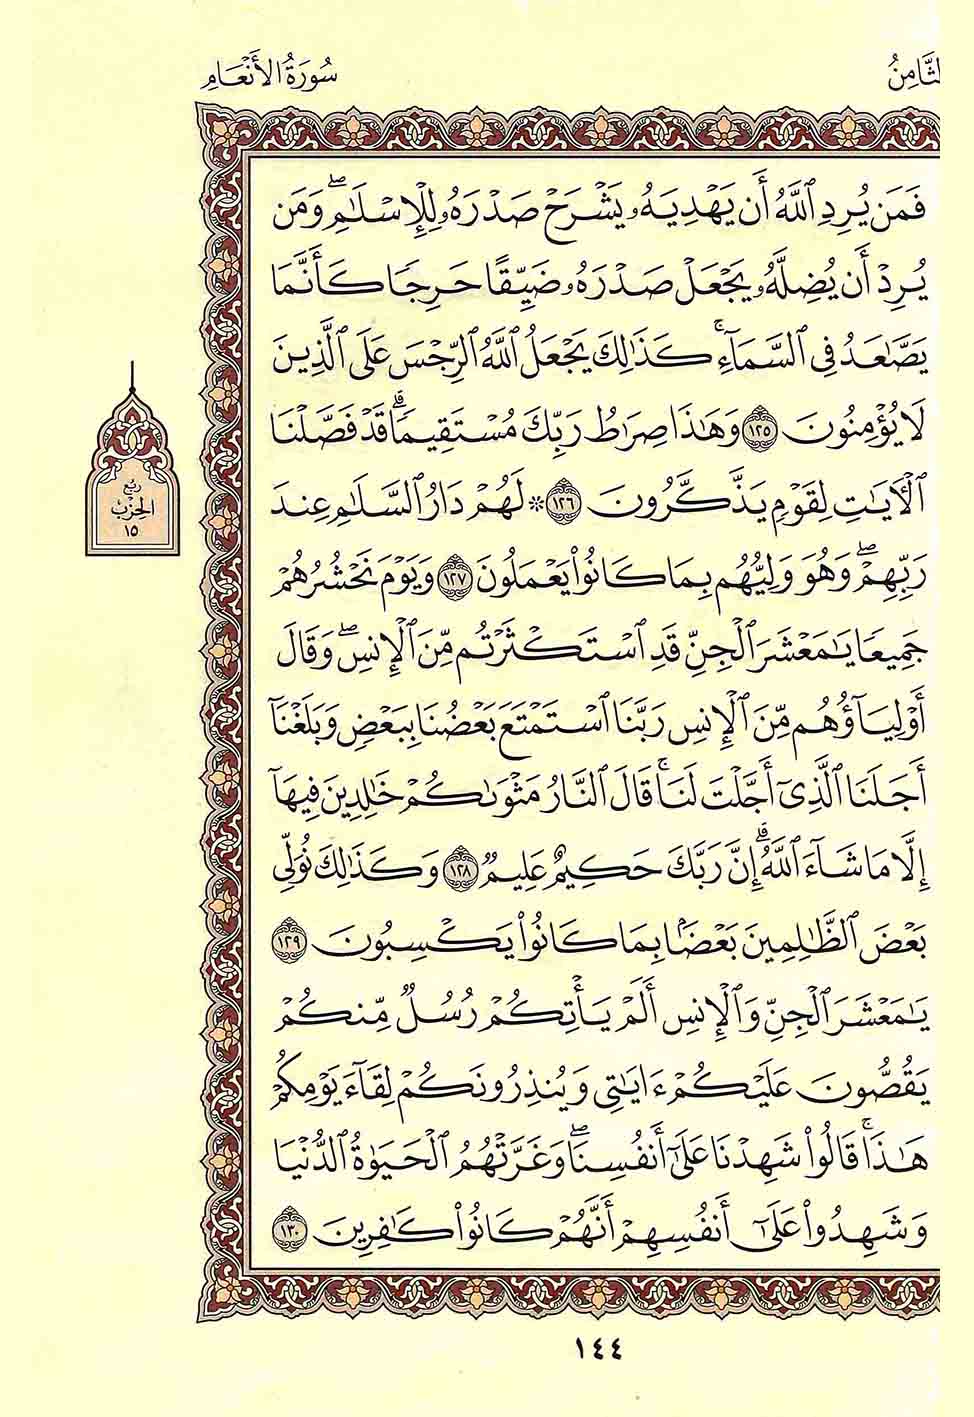 لثَّامِنُ
سُورَةُ الأَنْعَامِ
فَمَن يُرِدِ ٱللَّهُ أَن يَهْدِيَهُۥ يَشْرَحْ صَدْرَهُۥ لِلْإِسْلَٰمِ ۖ وَمَن
يُرِدْ أَن يُضِلَّهُۥ يَجْعَلْ صَدْرَهُۥ ضَيِّقًا حَرَجًا كَأَنَّمَا
يَصَّعَّدُ فِى ٱلسَّمَآءِ ۚ كَذَٰلِكَ يَجْعَلُ ٱللَّهُ ٱلرِّجْسَ عَلَى ٱلَّذِينَ
لَا يُؤْمِنُونَ ١٢٥ وَهَٰذَا صِرَٰطُ رَبِّكَ مُسْتَقِيمًا ۗ قَدْ فَصَّلْنَا
ٱلْءَايَٰتِ لِقَوْمٍ يَذَّكَّرُونَ ١٢٦ ۞ لَهُمْ دَارُ ٱلسَّلَٰمِ عِندَ
رَبِّهِمْ ۖ وَهُوَ وَلِيُّهُم بِمَا كَانُوا۟ يَعْمَلُونَ ١٢٧ وَيَوْمَ نَحْشُرُهُمْ
جَمِيعًا يَٰمَعْشَرَ ٱلْجِنِّ قَدِ ٱسْتَكْثَرْتُم مِّنَ ٱلْإِنسِ ۖ وَقَالَ
أَوْلِيَآؤُهُم مِّنَ ٱلْإِنسِ رَبَّنَا ٱسْتَمْتَعَ بَعْضُنَا بِبَعْضٍ وَبَلَغْنَآ
أَجَلَنَا ٱلَّذِىٓ أَجَّلْتَ لَنَا ۚ قَالَ ٱلنَّارُ مَثْوَىٰكُمْ خَٰلِدِينَ فِيهَآ
إِلَّا مَا شَآءَ ٱللَّهُ ۗ إِنَّ رَبَّكَ حَكِيمٌ عَلِيمٌ ١٢٨ وَكَذَٰلِكَ نُوَلِّى
بَعْضَ ٱلظَّٰلِمِينَ بَعْضًۢا بِمَا كَانُوا۟ يَكْسِبُونَ ١٢٩
يَٰمَعْشَرَ ٱلْجِنِّ وَٱلْإِنسِ أَلَمْ يَأْتِكُمْ رُسُلٌ مِّنكُمْ
يَقُصُّونَ عَلَيْكُمْ ءَايَٰتِى وَيُنذِرُونَكُمْ لِقَآءَ يَوْمِكُمْ
هَٰذَا ۚ قَالُوا۟ شَهِدْنَا عَلَىٰٓ أَنفُسِنَا ۖ وَغَرَّتْهُمُ ٱلْحَيَوٰةُ ٱلدُّنْيَا
وَشَهِدُوا۟ عَلَىٰٓ أَنفُسِهِمْ أَنَّهُمْ كَانُوا۟ كَٰفِرِينَ ١٣٠
رُبُعُ
الحِزْبِ
١٥
١٤٤